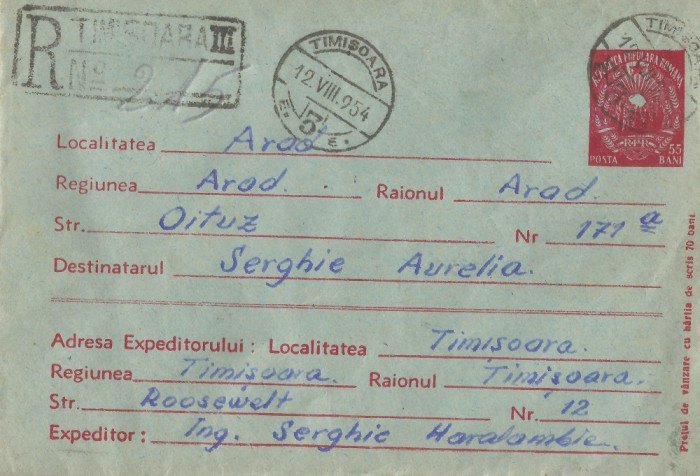 R TIMIȘOARA III
No 215
TIMISOARA
12.VIII.954
* E 3 E *
REPUBLICA POPULARA ROMANA
RPR
POSTA 55 BANI
Localitatea Arad
Regiunea Arad. Raionul Arad.
Str. Oituz Nr 171 a
Destinatarul Serghie Aurelia.
Adresa Expeditorului : Localitatea Timisoara.
Regiunea Timișoara. Raionul Timișoara.
Str. Roosewelt Nr. 12
Expeditor : Ing. Serghie Haralambie.
Prețul de vânzare cu hârtia de scris 70 bani.